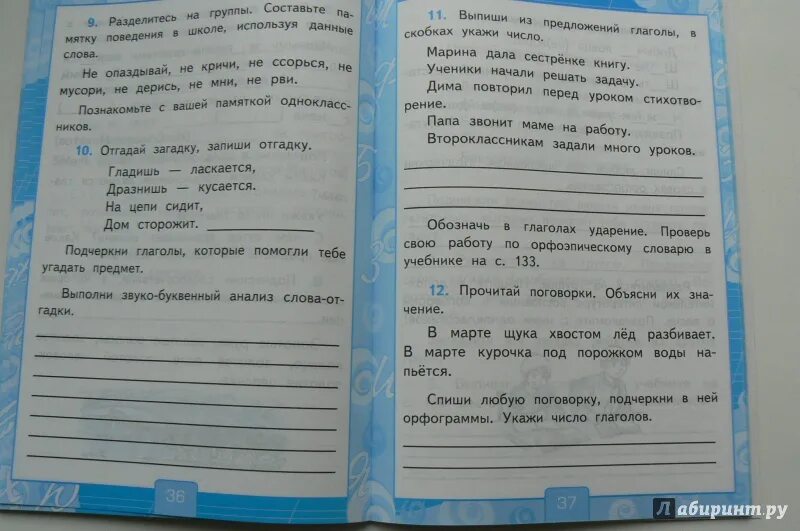 9. Разделитесь на группы. Составьте па-
мятку поведения в школе, используя данные
слова.
Не опаздывай, не кричи, не ссорься, не
мусори, не дерись, не мни, не рви.
Познакомьте с вашей памяткой однокласс-
ников.
10. Отгадай загадку, запиши отгадку.
Гладишь — ласкается,
Дразнишь — кусается.
На цепи сидит,
Дом сторожит.
Подчеркни глаголы, которые помогли тебе
угадать предмет.
Выполни звуко-буквенный анализ слова-от-
гадки.
36
11. Выпиши из предложений глаголы, в
скобках укажи число.
Марина дала сестрёнке книгу.
Ученики начали решать задачу.
Дима повторил перед уроком стихотво-
рение.
Папа звонит маме на работу.
Второклассникам задали много уроков.
Обозначь в глаголах ударение. Проверь
свою работу по орфоэпическому словарю в
учебнике на с. 133.
12. Прочитай поговорки. Объясни их зна-
чение.
В марте щука хвостом лёд разбивает.
В марте курочка под порожком воды на-
пьётся.
Спиши любую поговорку, подчеркни в ней
орфограммы. Укажи число глаголов.
37
Лабиринт.ру